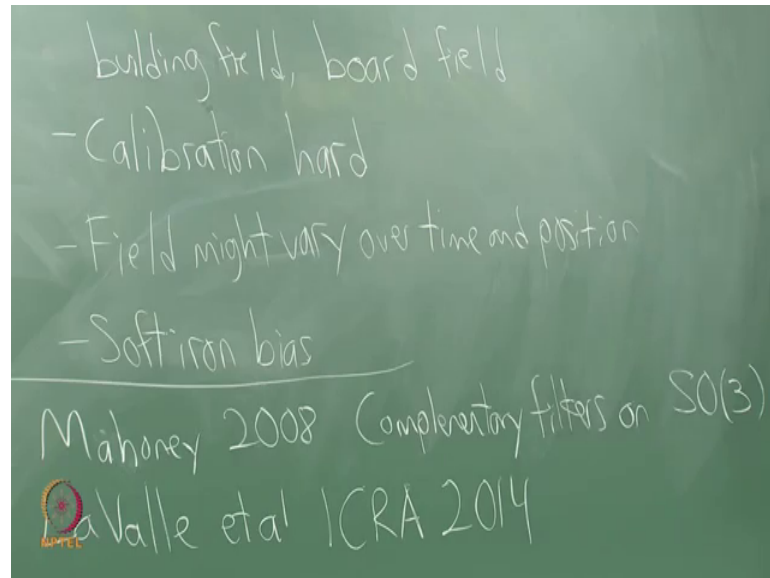 building field, board field
- Calibration hard
- Field might vary over time and position
- Soft iron bias
Mahoney 2008 Complementary filters on SO(3)
LaValle et al ICRA 2014
NPTEL